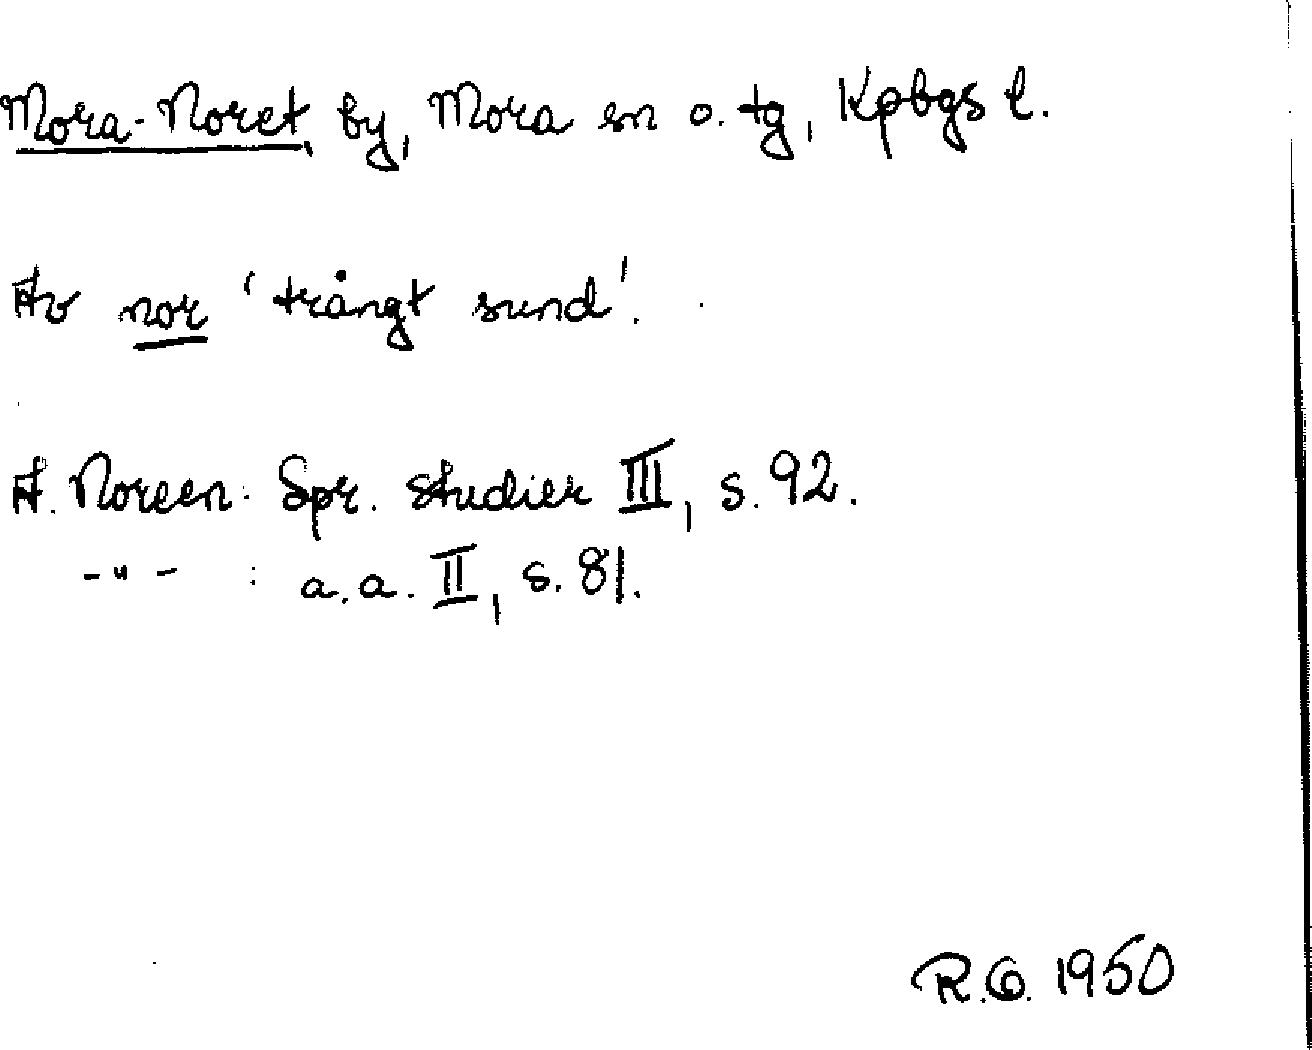 Mora-Noret, by, Mora sn o. tg, Kpbgs l.
Av nor 'trångt sund'.
A. Noreen: Spr. studier III, s. 92.
-"- : a.a. II, s. 81.
R.G. 1950